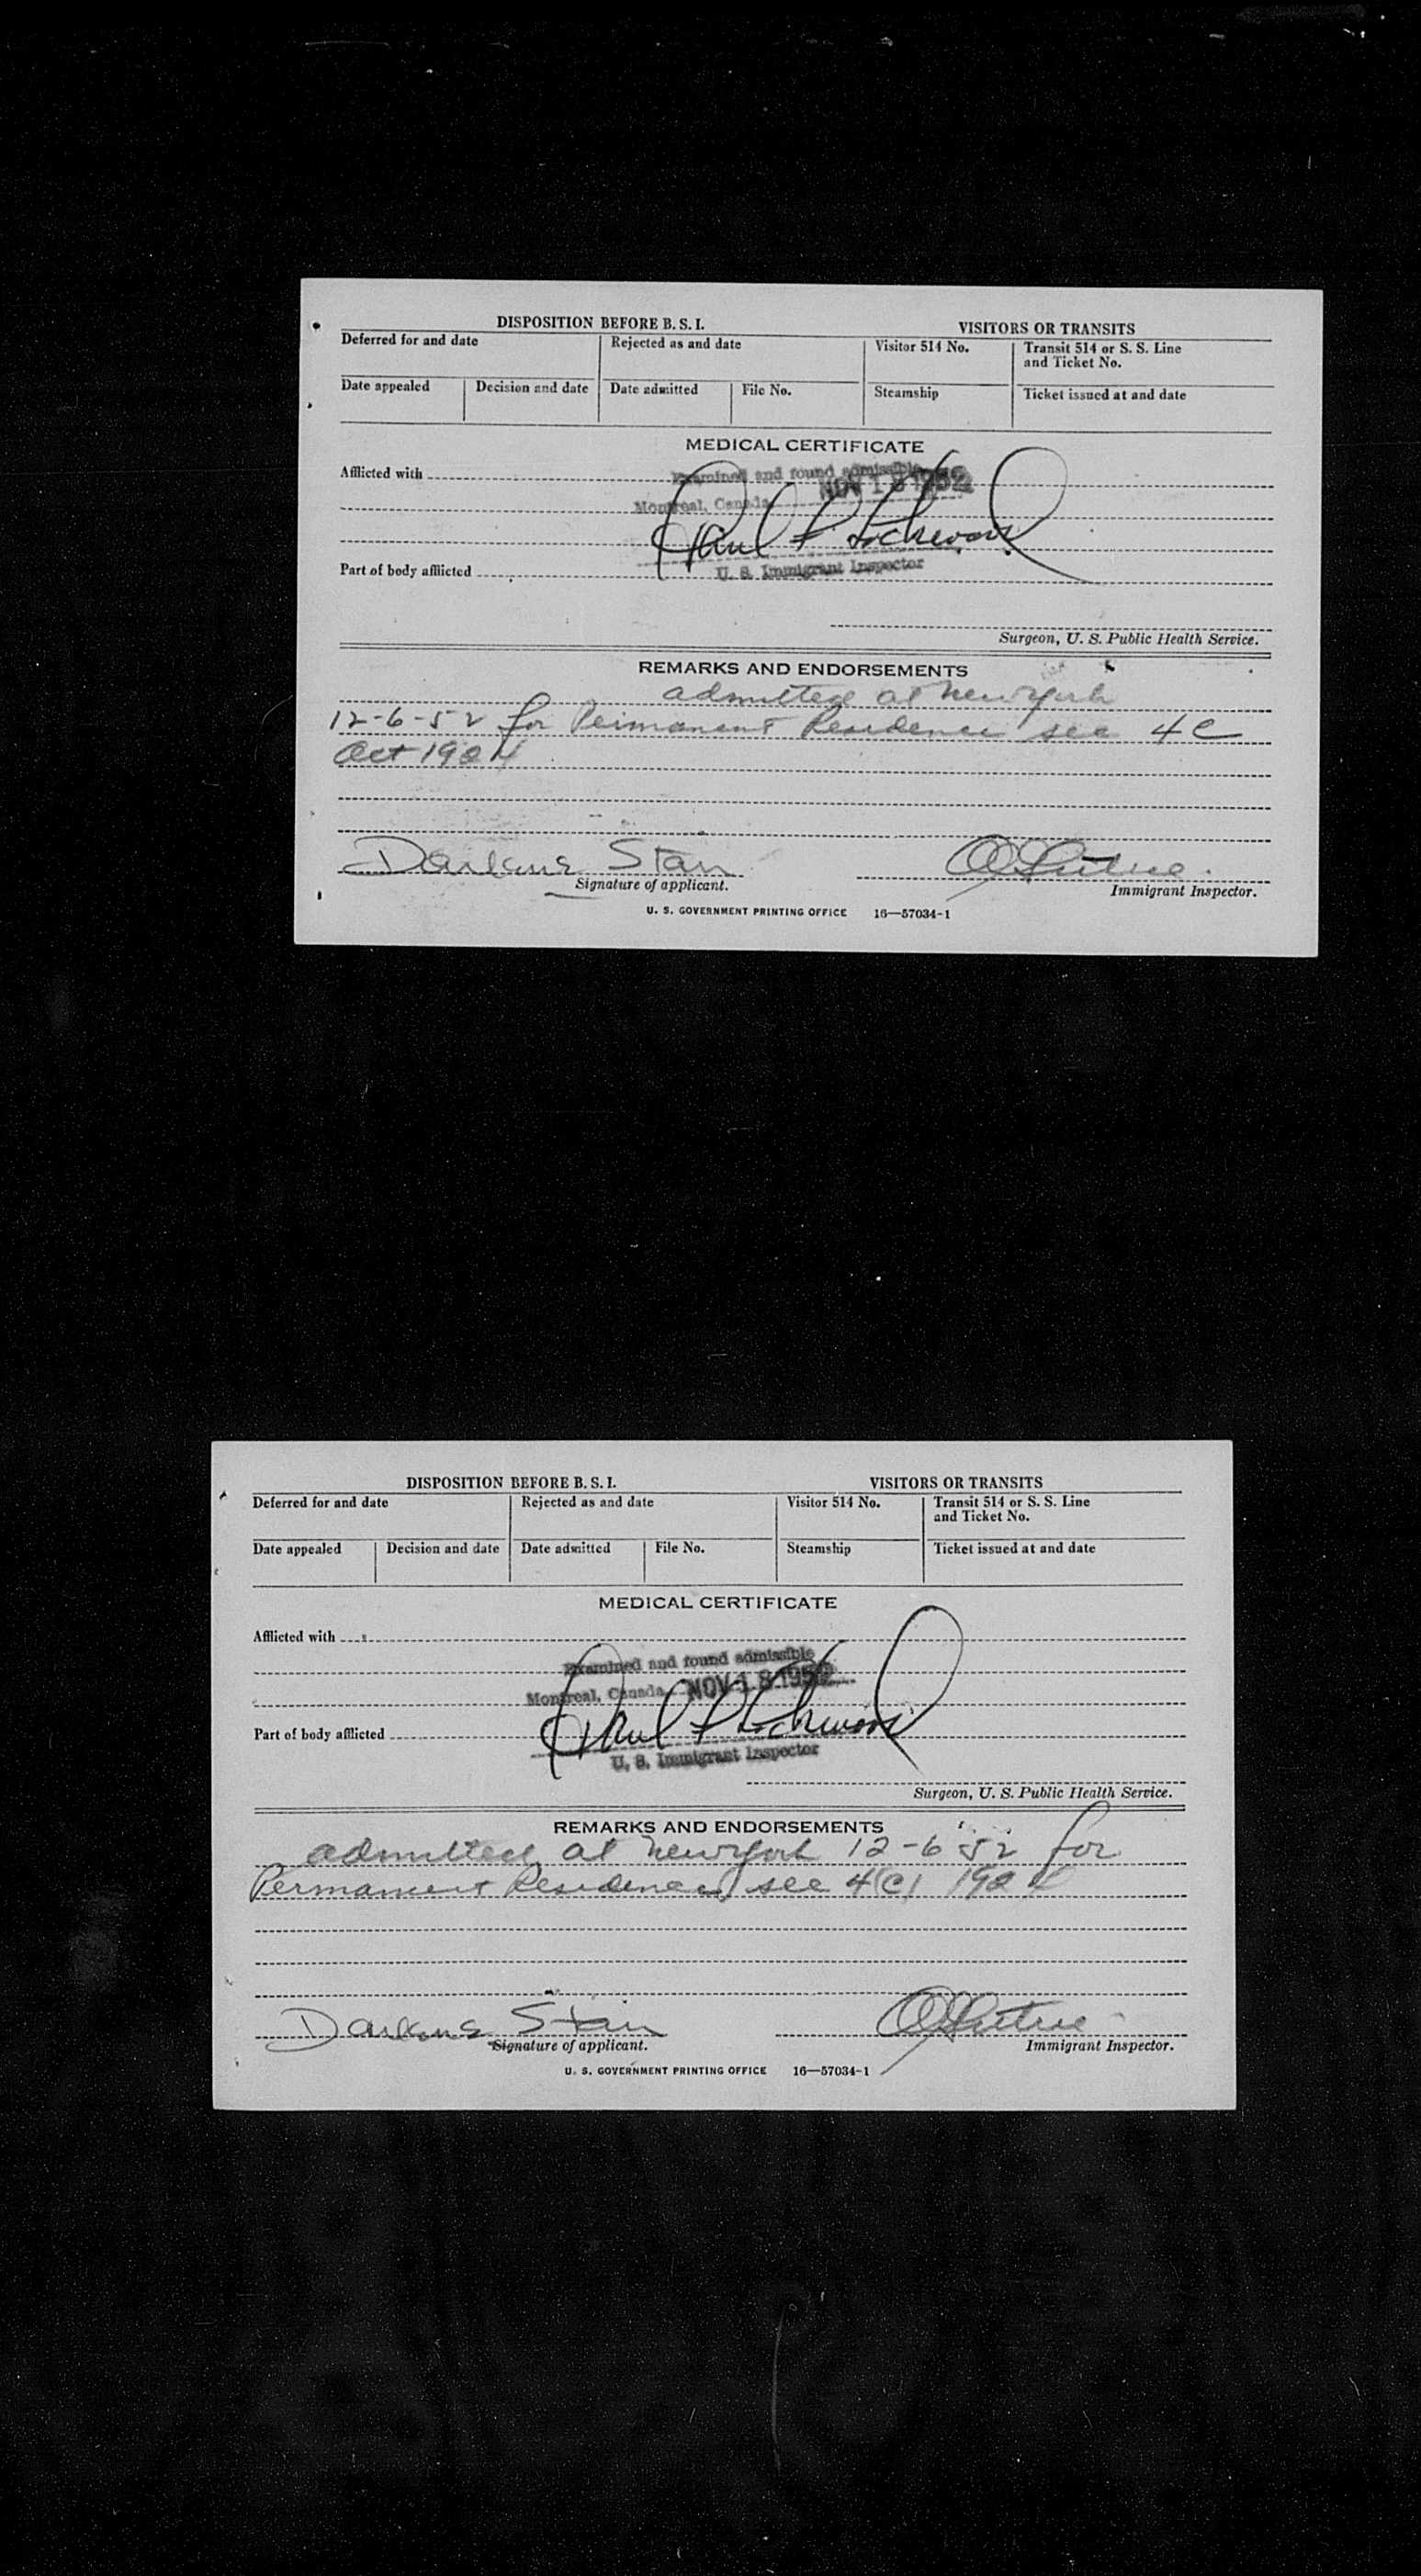 DISPOSITION BEFORE B. S. I.
VISITORS OR TRANSITS
Deferred for and date
Rejected as and date
Visitor 514 No.
Transit 514 or S. S. Line
and Ticket No.
Date appealed
Decision and date
Date admitted
File No.
Steamship
Ticket issued at and date
MEDICAL CERTIFICATE
Afflicted with
Examined and found admissible
Montreal, Canada NOV 18 1952
Paul F Lockwood
U. S. Immigrant Inspector
Part of body afflicted
Surgeon, U. S. Public Health Service.
REMARKS AND ENDORSEMENTS
admitted at New York
12-6-52 for Permanent Residence see 4 C
Act 1924
Stan
Signature of applicant.
Immigrant Inspector.
U. S. GOVERNMENT PRINTING OFFICE 16—57034-1
DISPOSITION BEFORE B. S. I.
VISITORS OR TRANSITS
Deferred for and date
Rejected as and date
Visitor 514 No.
Transit 514 or S. S. Line
and Ticket No.
Date appealed
Decision and date
Date admitted
File No.
Steamship
Ticket issued at and date
MEDICAL CERTIFICATE
Afflicted with
Examined and found admissible
Montreal, Canada NOV 18 1952
Paul F Lockwood
U. S. Immigrant Inspector
Part of body afflicted
Surgeon, U. S. Public Health Service.
REMARKS AND ENDORSEMENTS
admitted at New York 12-6-52 for
Permanent Residence, see 4(C) 1924
Stan
Signature of applicant.
Immigrant Inspector.
U. S. GOVERNMENT PRINTING OFFICE 16—57034-1